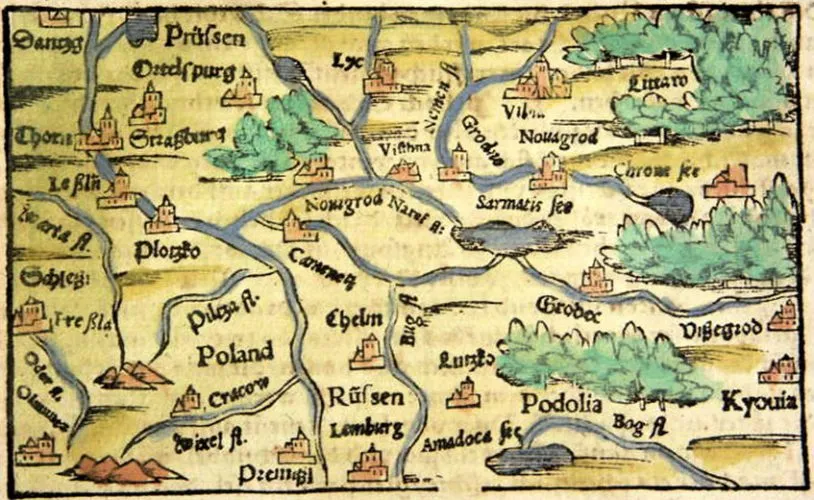 Dantzg
Prüssen
Ortelspurg
Lyc
Littaw
Nemen fl
Vilna
Thorn
Straßburg
Grodno
Nouugrod
Visthna
Chrone see
Leßlin
Nouugrod
Naref fl:
Sarmatis see
Warta fl.
Plotzko
Camenetz
Schlesi
Preßla
Pilcza fl.
Chelm
Bug fl
Grodec
Vißegrod
Poland
Lutzko
Oder fl.
Cracow
Rüssen
Podolia
Kyouia
Olmuntz
Wixel fl.
Lemburg
Amadoca see
Bog fl
Premißl